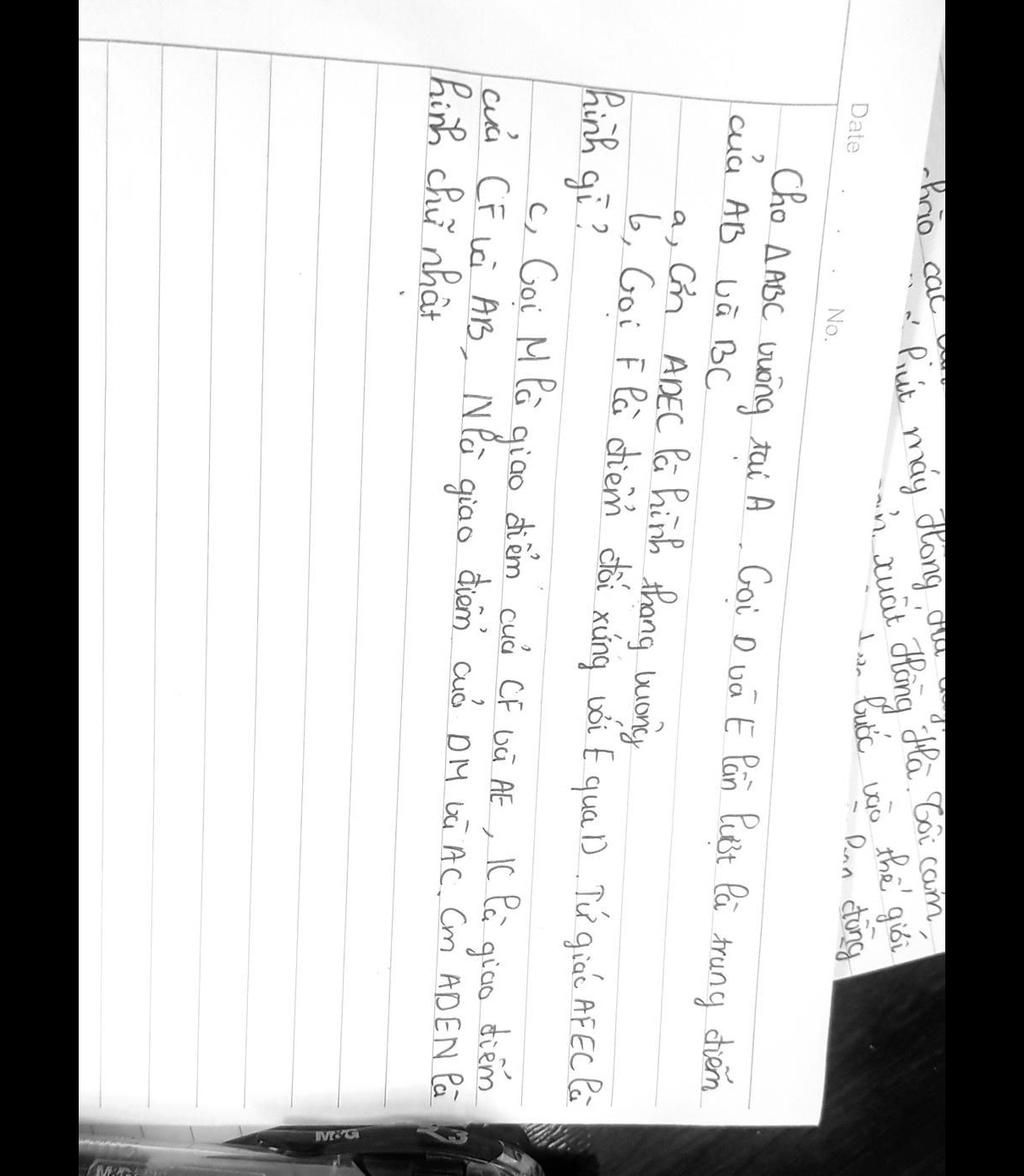 các
máy
xuất Hồng Hà. Tôi cảm
bước vào thế giới
dòng
Date . . . No.
Cho ΔABC vuông tại A. Gọi D và E lần lượt là trung điểm
của AB và BC
a, Cm ADEC là hình thang vuông
b, Gọi F là điểm đối xứng với E qua D. Tứ giác AFEC là
hình gì?
c, Gọi M là giao điểm của CF và AE, K là giao điểm
của CF và AB, N là giao điểm của DM và AC. Cm ADEN là
hình chữ nhật
M&G